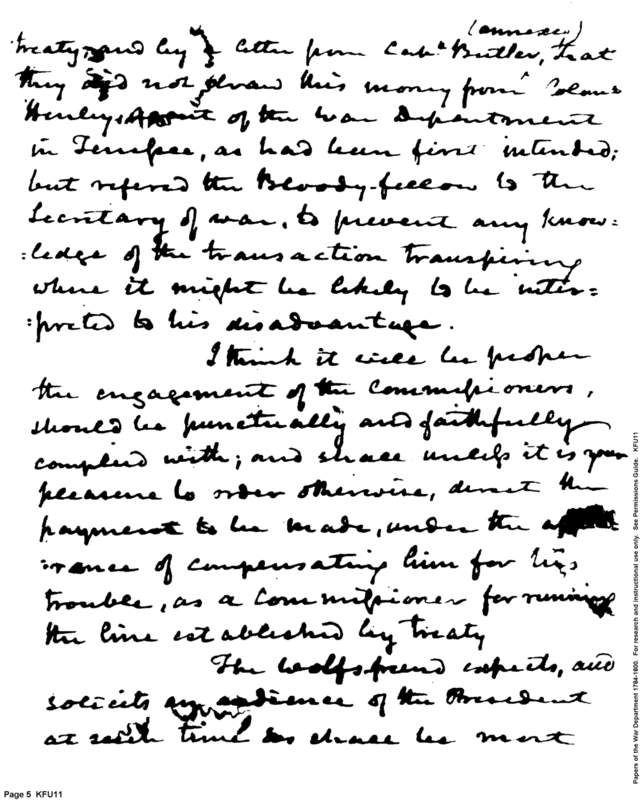 (annexed)
treaty, and by a letter from Capt. Butler, that
they did not draw this money from Colon=
Henley, Agent of the War Department
in Tennessee, as had been first intended;
but refered the Bloody-fellow to the
Secretary of War, to prevent any know=
=ledge of the transaction transpiring
where it might be likely to be inter=
=preted to his disadvantage.
I think it will be proper
the engagement of the Commissioners,
should be punctually and faithfully
complied with; and shall unless it is your
pleasure to order otherwise, direct the
payment to be made, under the
=rance of compensating him for his
trouble, as a Commissioner for running
the line established by treaty
The Wolfsfriend expects, and
solicits an audience of the President
at such time as shall be most
Page 5 KFU11
Papers of the War Department 1784-1800. For research and instructional use only. See Permissions Guide. KFU11